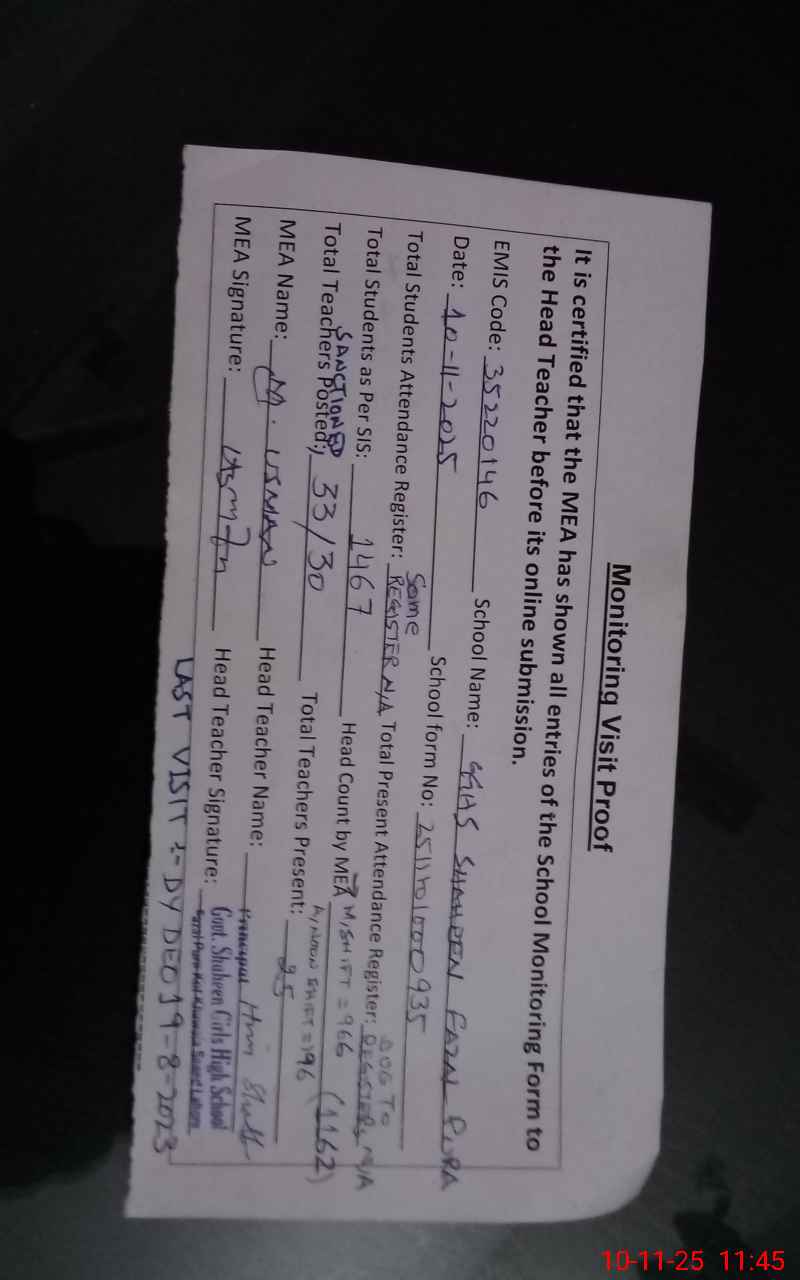 Monitoring Visit Proof
It is certified that the MEA has shown all entries of the School Monitoring Form to
the Head Teacher before its online submission.
EMIS Code: 35220146 School Name: GGHS SHAHEEN FAZN PURA
Date: 10-11-2025 School form No: 2511101000935
Total Students Attendance Register: Some REGISTER N/A Total Present Attendance Register: DOG TO REGISTERS N/A
Total Students as Per SIS: 1467 Head Count by MEA M/SHIFT = 966 (1162)
A/NOON SHIFT = 196
SANCTIONED
Total Teachers Posted: 33/30 Total Teachers Present: 25
MEA Name: M. USMAN Head Teacher Name:
MEA Signature: Usman Head Teacher Signature: Principal
Govt. Shaheen Girls High School
LAST VISIT :- DY DEO 19-8-2023
10-11-25 11:45